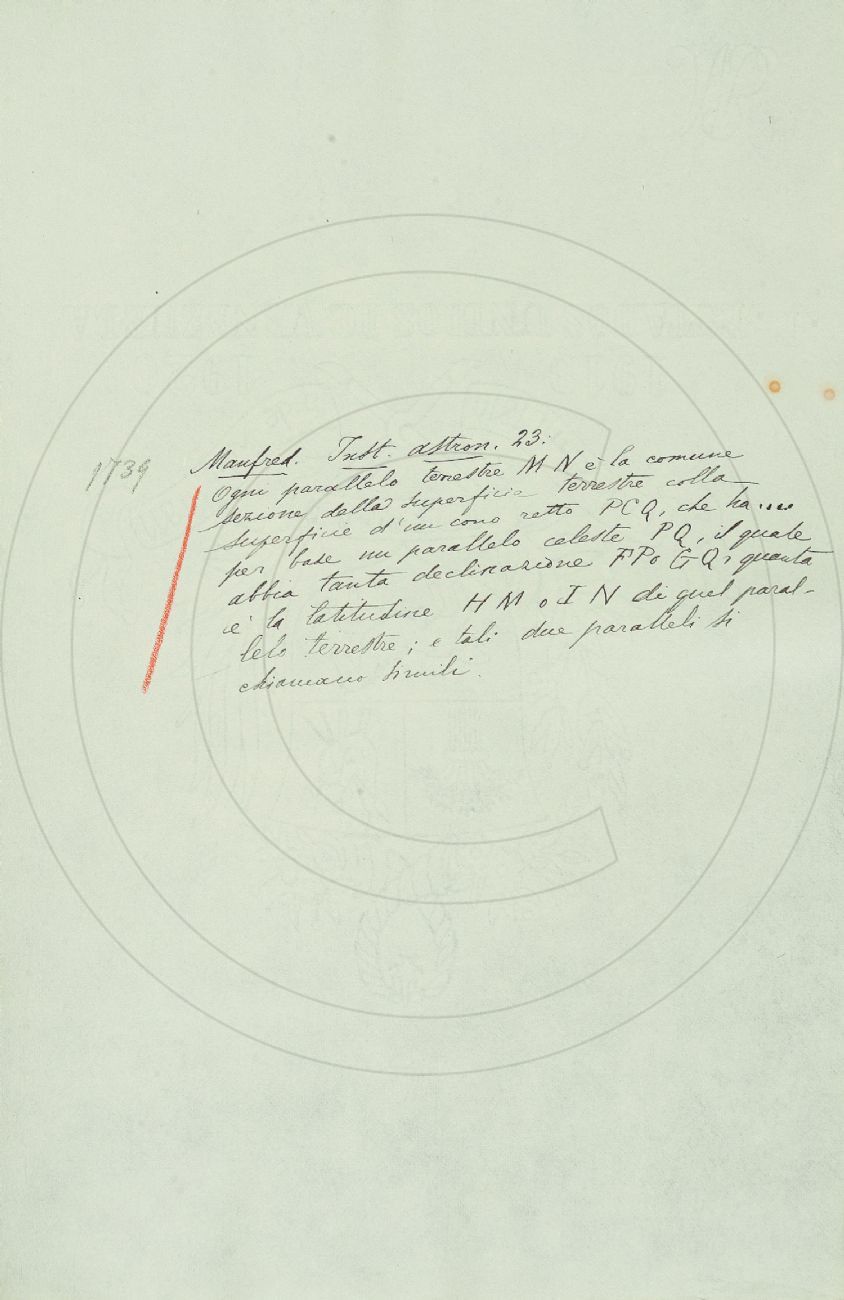 1739
Manfred. Inst. astron. 23:
Ogni parallelo terrestre M N è la comune
sezione della superficie terrestre colla
superficie d'un cono retto PCQ, che ha....
per base un parallelo celeste PQ, il quale
abbia tanta declinazione FP o GQ, quanta
è la latitudine H M o I N di quel paral-
lelo terrestre; e tali due paralleli si
chiamano simili.